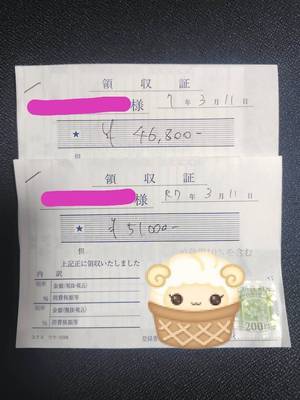 領収証
様 7年3月11日
★ ¥46,800-
但
領収証
様 R7年3月11日
★ ¥51000-
但
上記正に領収いたしました
内訳
税率 金額(税抜・税込)
% 消費税額等
税率 金額(税抜・税込)
% 消費税額等
200